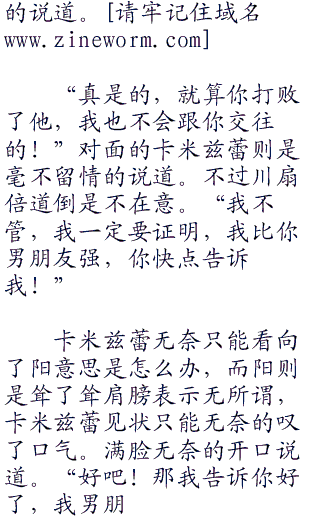 的说道。[请牢记住域名
www.zineworm.com]
“真是的，就算你打败
了他，我也不会跟你交往
的！”对面的卡米兹蕾则是
毫不留情的说道。不过川扇
倍道倒是不在意。“我不
管，我一定要证明，我比你
男朋友强，你快点告诉
我！”
卡米兹蕾无奈只能看向
了阳意思是怎么办，而阳则
是耸了耸肩膀表示无所谓，
卡米兹蕾见状只能无奈的叹
了口气。满脸无奈的开口说
道。“好吧！那我告诉你好
了，我男朋